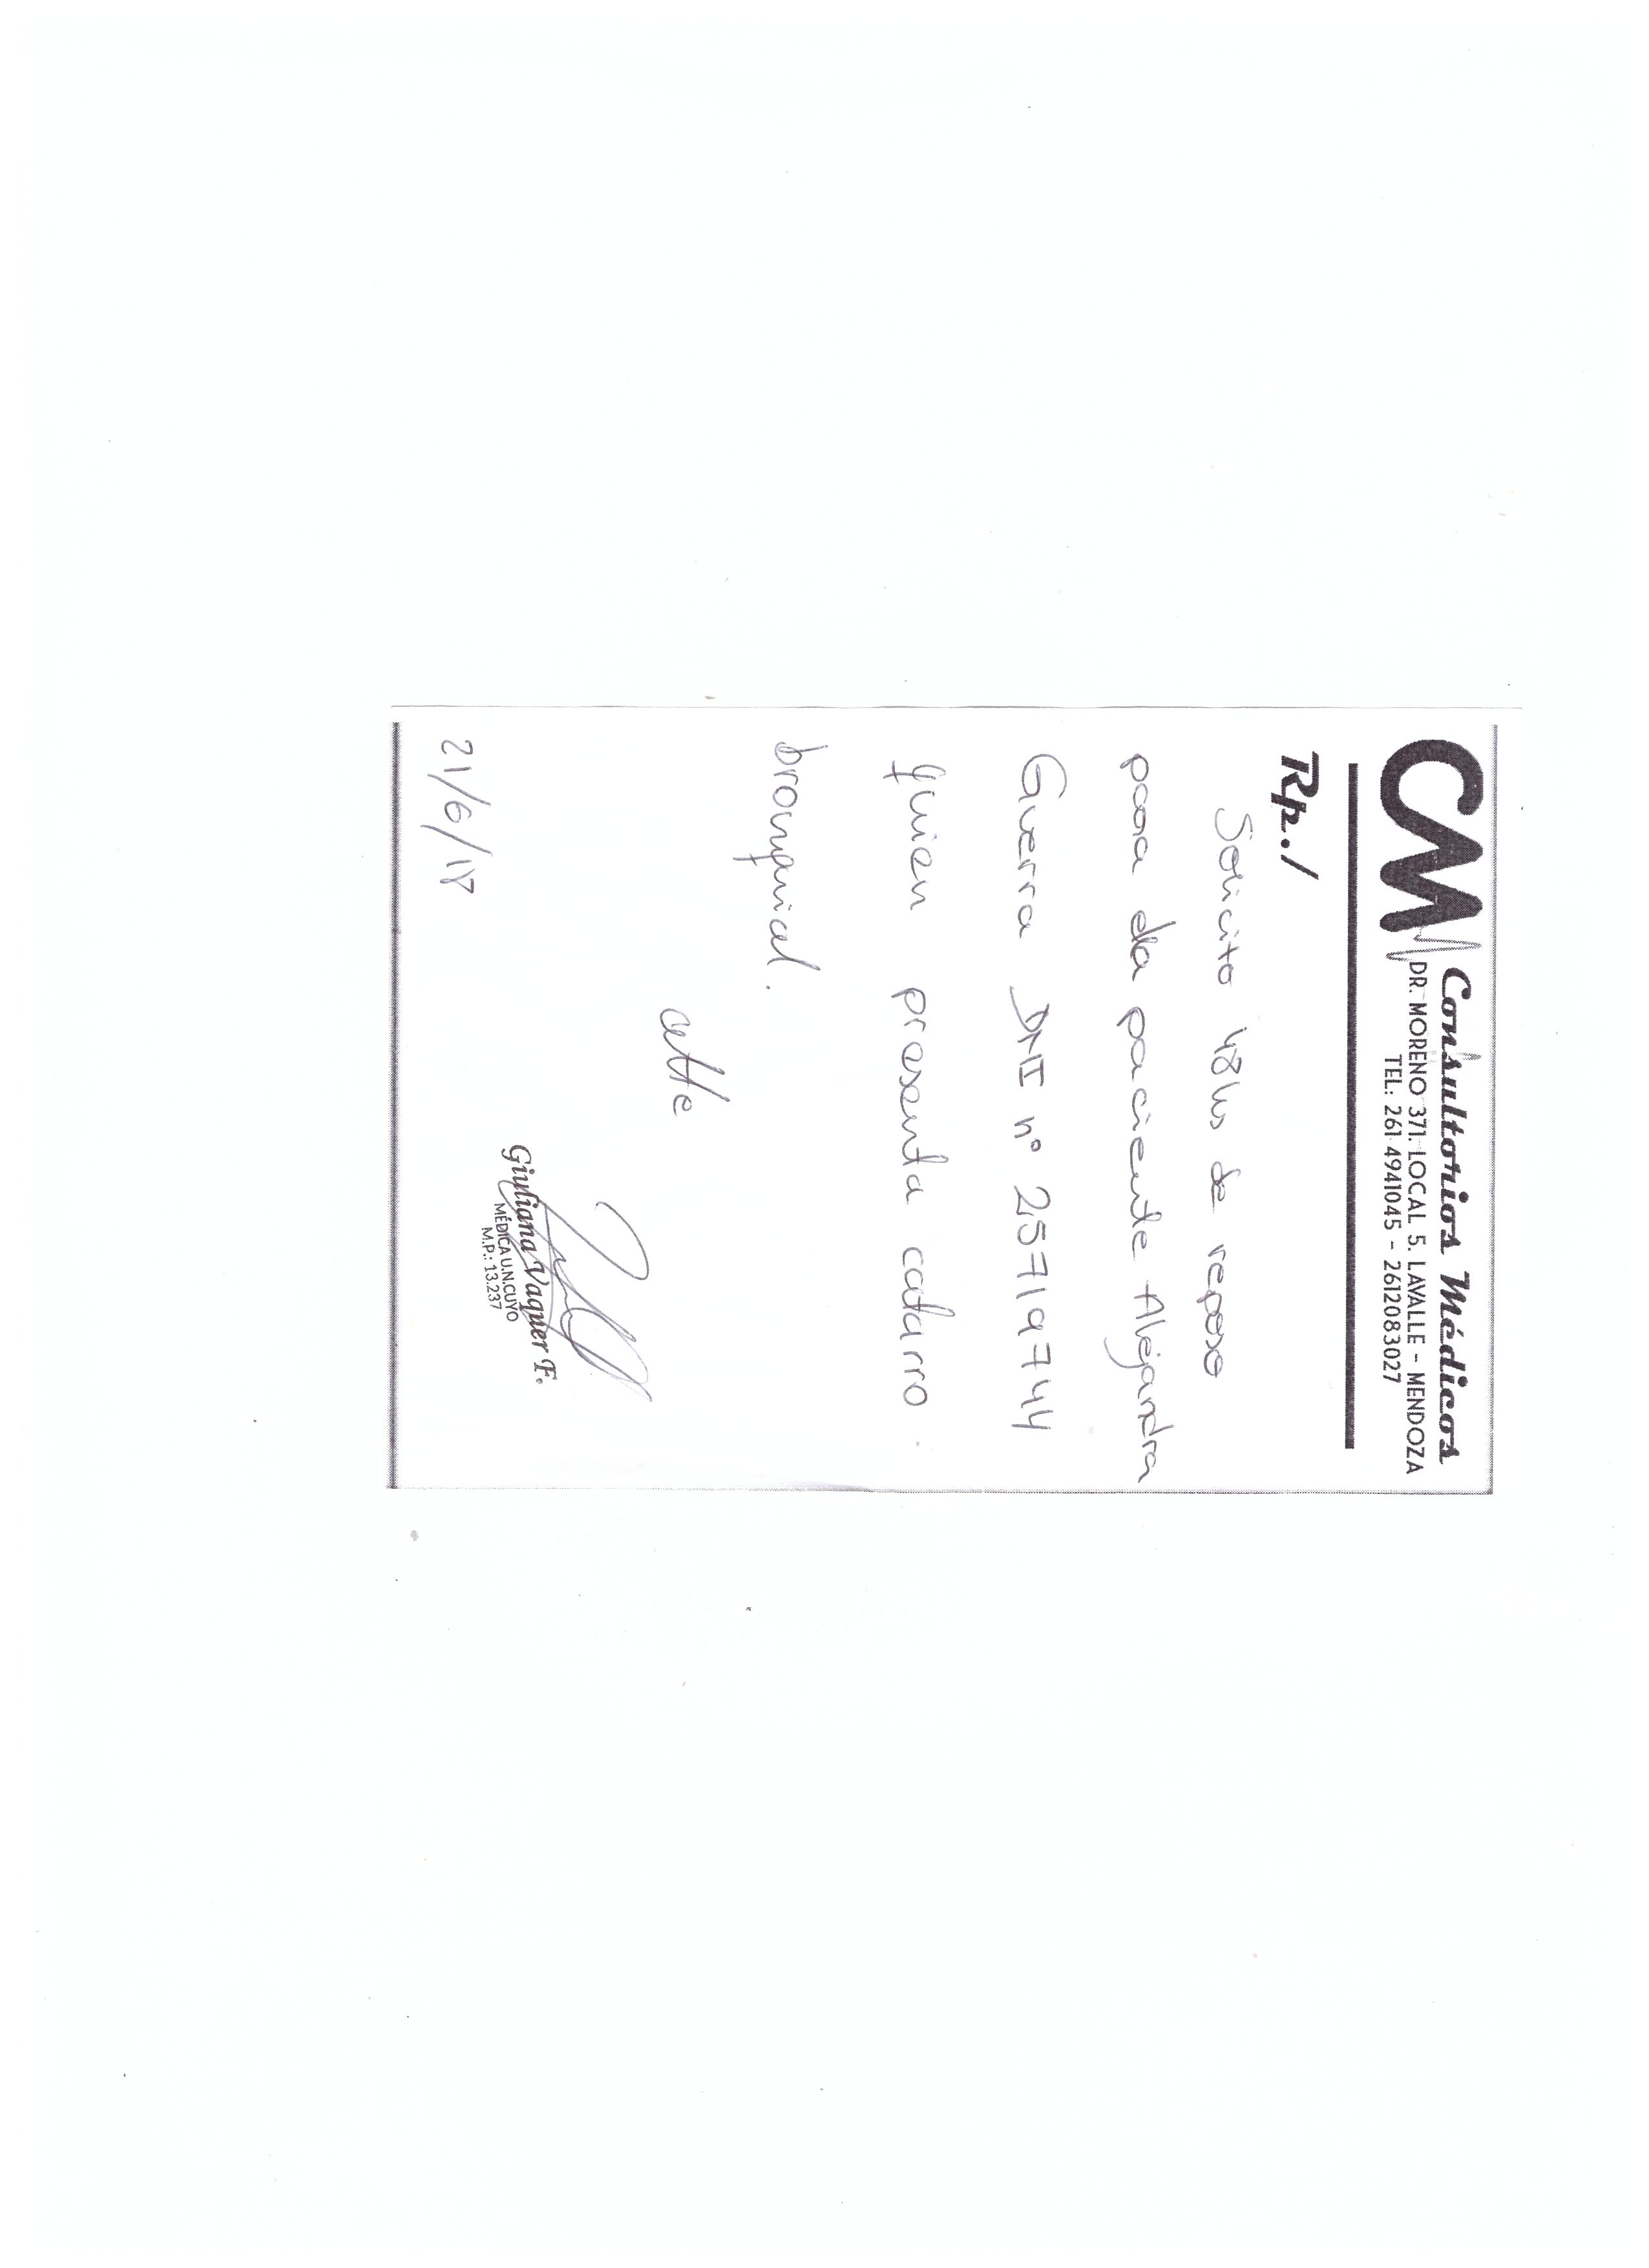 CM Consultorios Médicos
DR. MORENO 371. LOCAL 5. LAVALLE - MENDOZA
TEL: 261 4941045 - 2612083027
Rp./
Solicito 48hs de reposo
para la paciente Alejandra
Guerra DNI nº 25719744
quien presenta catarro
bronquial.
atte
Giuliana Vaquer F.
MÉDICA U.N.CUYO
M.P.: 13.237
21/6/18